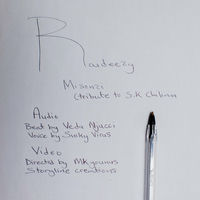 Raudeezy
Misonzi
(tribute to S.K Chibinza
Audio
Beat by Veda Njucci
Voice by Sinky Virus
Video
Directed by MK younus
Storyline creations